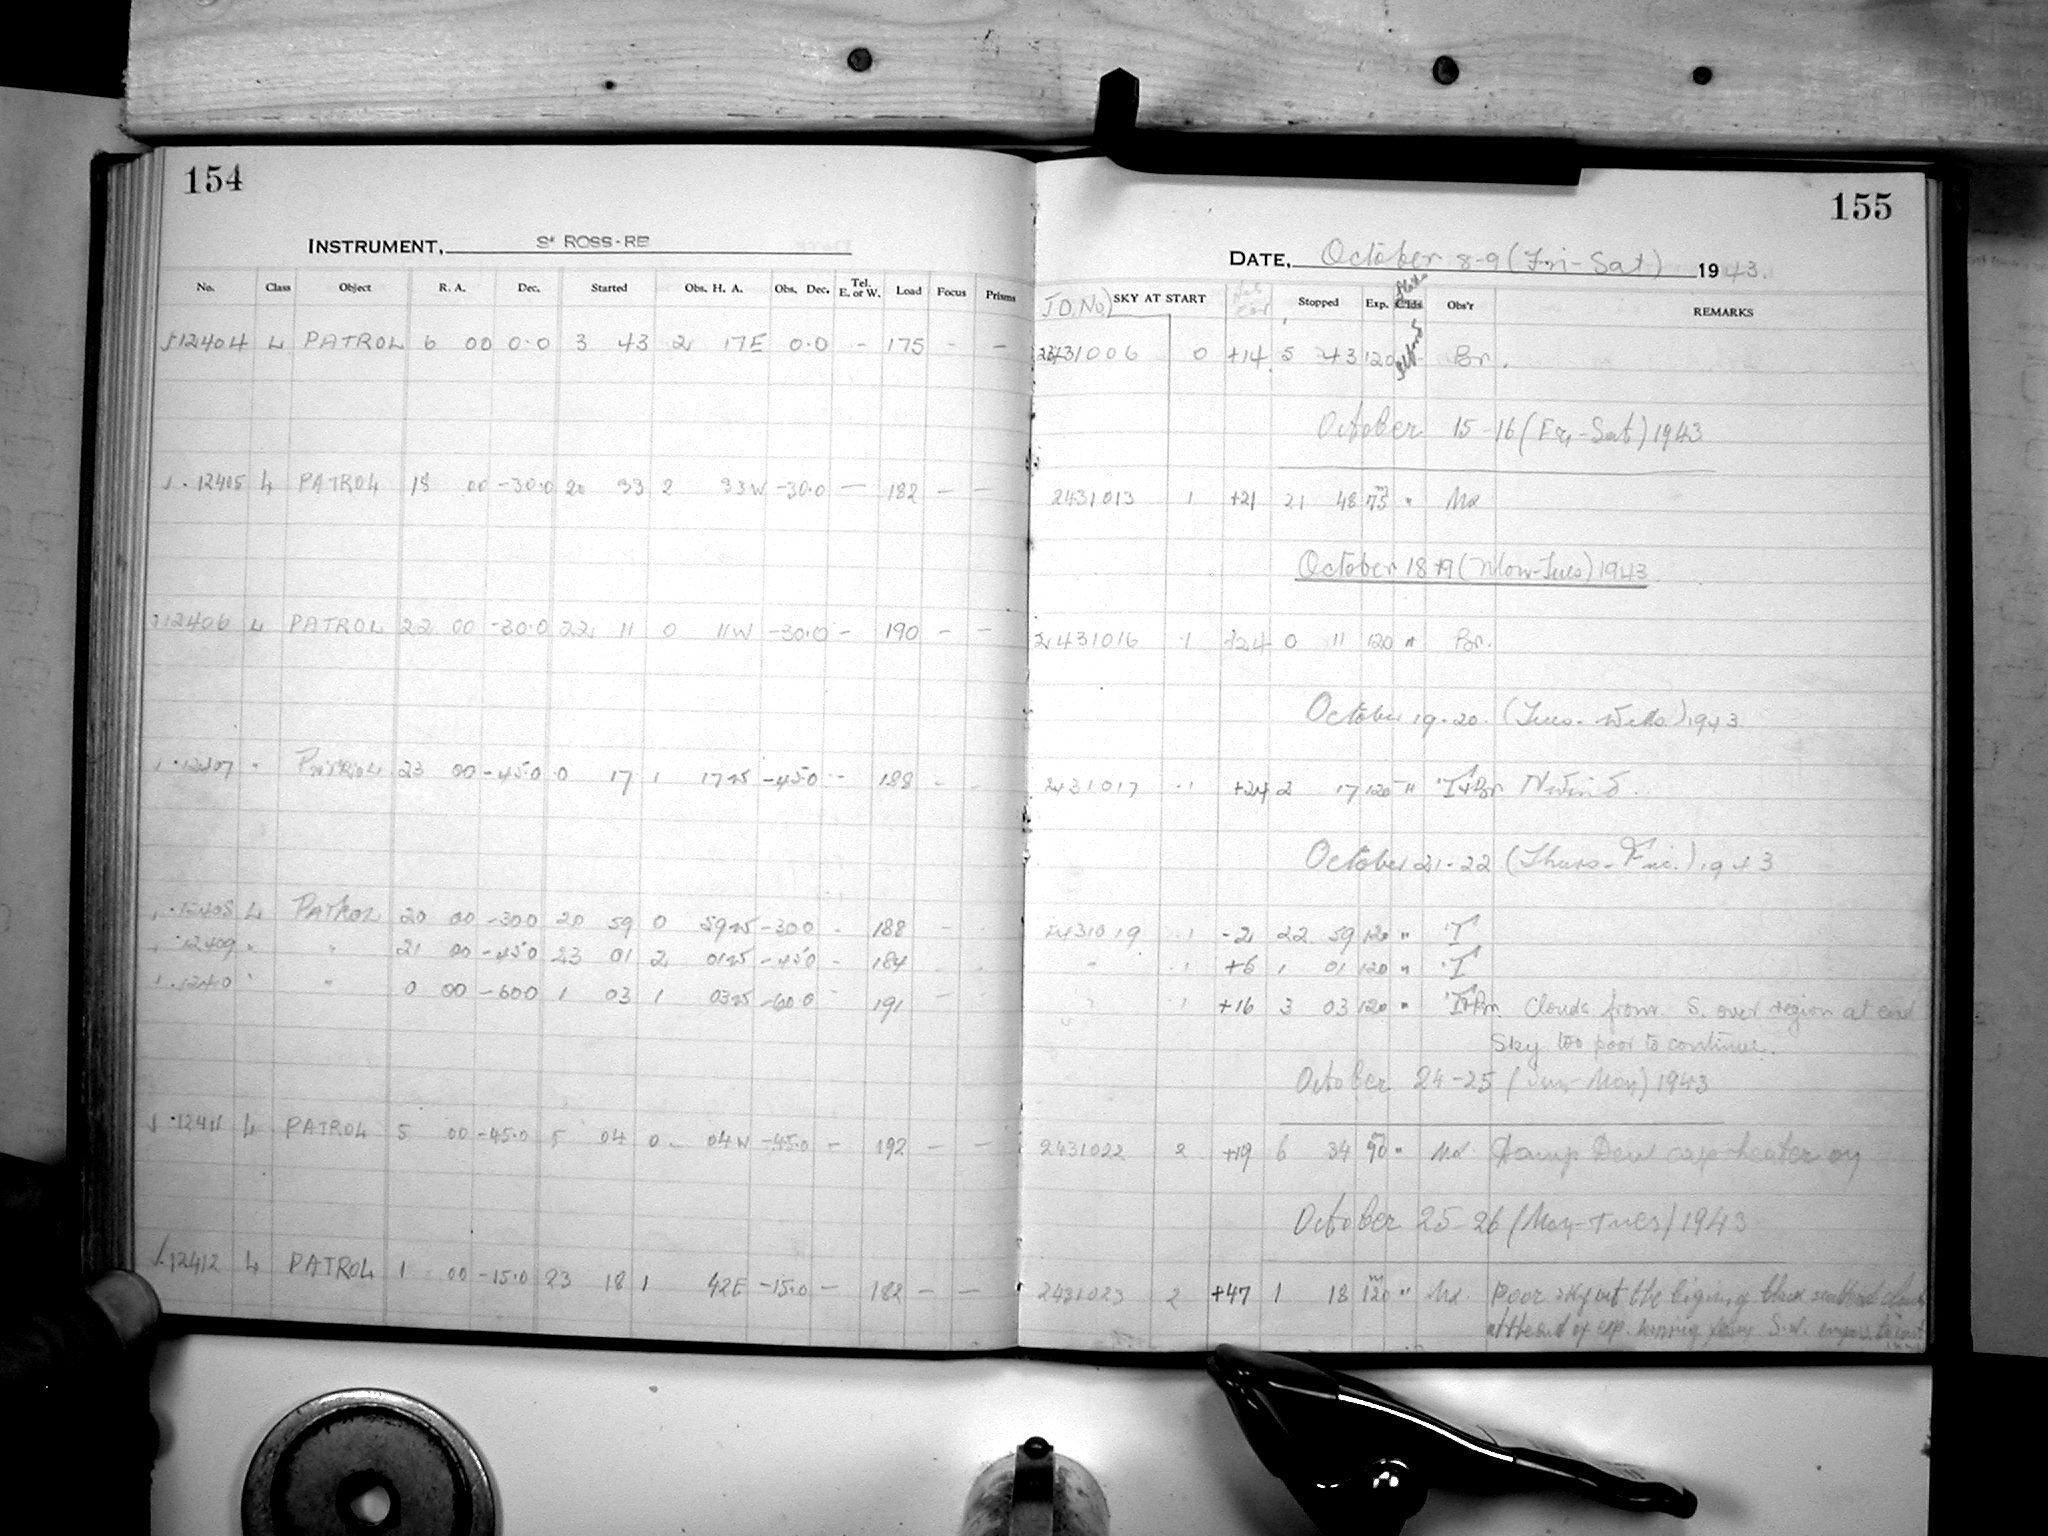 154
INSTRUMENT, ROSS-RB
No. Class Object R. A. Dec. Started Obs. H. A. Obs. Dec. Tel. E. or W. Load Focus Prisms
12404 L PATROL 6 00 0.0 3 43 2 17E 0.0 - 175 - -
12405 L PATROL 18 00 -30.0 20 33 2 33W -30.0 - 182 - -
12406 L PATROL 22 00 -30.0 22 11 0 11W -30.0 - 190 - -
12407 " PATROL 23 00 -45.0 0 17 1 17W -45.0 - 188 - -
12408 L PATROL 20 00 -30.0 20 59 0 59W -30.0 - 188 - -
12409 " " 21 00 -45.0 23 01 2 01W -45.0 - 184 - -
12410 " " 0 00 -60.0 1 03 1 03W -60.0 - 191 - -
12411 L PATROL 5 00 -45.0 5 04 0 04W -45.0 - 192 - -
12412 L PATROL 1 00 -15.0 23 18 1 42E -15.0 - 182 - -
155
DATE, October 8-9 (Fri-Sat) 1943.
J.D. No. SKY AT START Stopped Exp. Obs'r REMARKS
2431006 0 +14 5 43 120 Br.
October 15-16 (Fri-Sat) 1943
2431013 1 +21 21 48 75 " Md
October 18-19 (Mon-Tues) 1943
2431016 1 +24 0 11 120 " Br.
October 19-20. (Tues-Weds) 1943
2431017 1 +24 2 17 120 " T+Br N wind.
October 21-22 (Thurs-Fri.) 1943
2431019 1 -2 22 59 120 " T
" 1 +6 1 01 120 " T
" 1 +16 3 03 120 " T+Br. Clouds from S. over region at end
Sky too poor to continue.
October 24-25 (Sun-Mon) 1943
2431022 2 +19 6 34 90 " Md. Damp Dew cap heater on
October 25-26 (Mon-Tues) 1943
2431023 2 +47 1 18 120 " Md. Poor sky at the
at the end of exp.